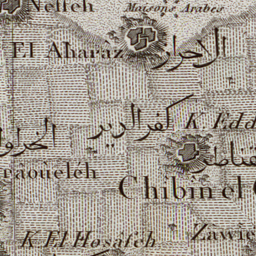 Nefléh
Maisons Arabes
El Aharaz
الاحراز
كفر الدير
K Edd
قناطر
raouéléh
Chibin el
K El Hosáféh
Zawie